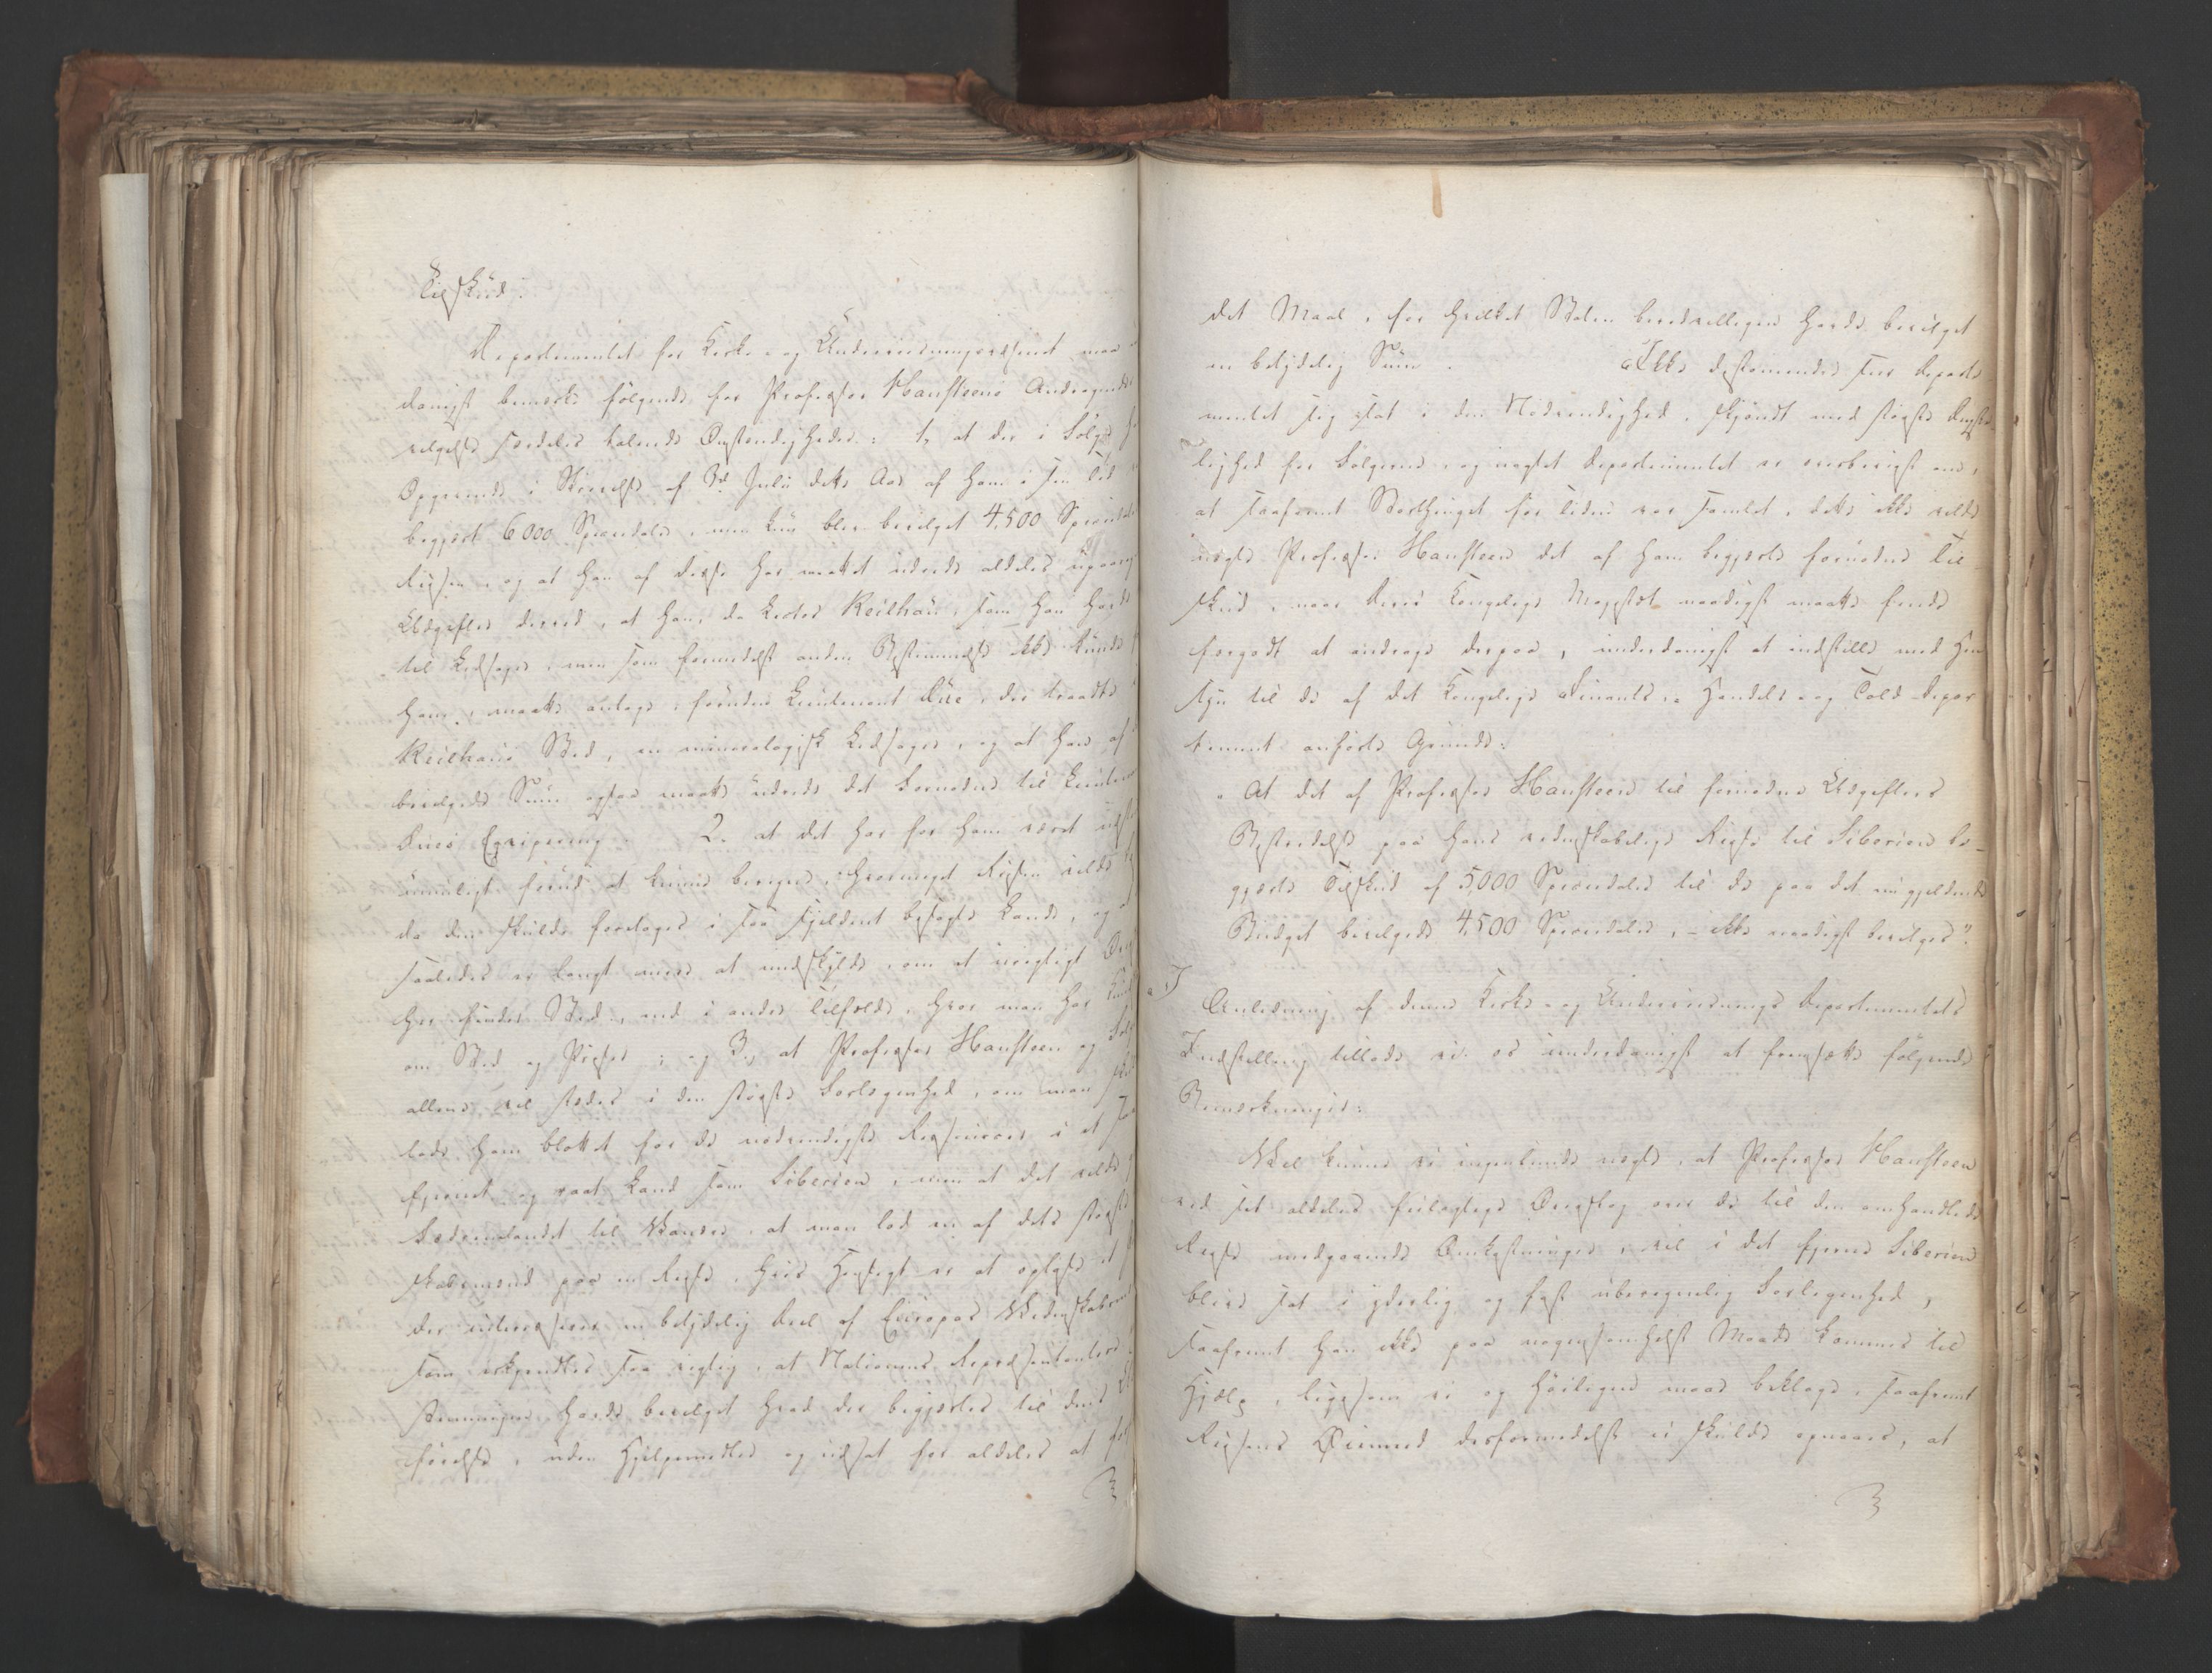 Tilskud.
Departementet for Kirke- og Underviisningsvæsenet maa
danigst bemærke følgende for Professor Hansteens Andragende
særdeles talende Omstændigheder: 1, at der i Følge
Opgivende i Skrivelse af 3d Julii dette Aar af ham i sin Tid
begjært 6000 Speciedaler, men kun blev bevilget 4,500 Speciedaler
Reisen, og at han af disse har maattet udrede aldeles
Udgifter derved, at han, da Lector Keilhau, som han havde
til Ledsager, men som formedelst anden Bestemmelse ikke kunde
ham, maatte antage, foruden Lieutenant Due, der traadte
Keilhaus Sted, en mineralogisk Ledsager, og at han af
bevilgede Sum ogsaa maatte udrede det Fornødne til Lieutenant
Dues Eqvipering. 2. at det har for ham været
umuligt forud at kunne beregne, hvormeget Reisen vilde
da den skulde foretages i saa sjeldent besøgte Lande, og
saaledes er langt mere at undskylde, om et urigtigt
her finder Sted, end i andre Tilfælde, hvor man har
om Sted og Priser; og 3, at Professor Hansteen og
allene vil stædes i den største Forlegenhed, om man
lade ham blottet for de nødvendigste Ressourcer i et
fjernt og raat Land som Siberien, men at det vilde
Fædrenelandet til Vanære, at man lod en af dets største
skabsmænd paa en Reise, hvis Hensigt er at opløse et
der interesserer en betydelig Deel af Europas Videnskabsmænd
som erkjendtes saa vigtig, at Nationens Repræsentanter
stemmigen havde bevilget hvad der begjærtes til dens
førelse, uden Hjelpemidler og udsat for aldeles at
det Maal, for hvilket Staten beredvilligen havde bevilget
en betydelig Sum. Ikke destomindre seer Departe
mentet sig sat i den Nødvendighed, skjøndt med største
lighed for Følgerne, og uagtet Departementet er overbeviist om,
at saafremt Storthinget for Tiden var samlet, dette ikke vilde
nægte Professor Hansteen det af ham begjærte fornødne Til-
skud, naar Deres Kongelige Majestæt naadigst maatte finde
forgodt at andrage derpaa, underdanigst at indstille med Hen
syn til de af det Kongelige Finants-, Handels- og Told-Depar
tement anførte Grunde:
"At det af Professor Hansteen til fornødne Udgifters
Bestridelse paa hans videnskabelige Reise til Siberien be-
gjærte Tilskud af 5,000 Speciedaler til de paa det nu gjeldende
Budget bevilgede 4,500 Speciedaler, - ikke naadigst bevilges".
I
Anledning af denne Kirke- og Underviisnings Departementets
Indstilling tillade vi os underdanigst at fremsætte følgende
Bemærkninger:
Vel kunne vi ingenlunde nægte, at Professor Hansteen
ved sit aldeles feilagtige Overslag over de til den omhandlede
Reise medgaaende Omkostninger, vil i det fjerne Siberien
blive sat i yderlig og fast uberegnelig Forlegenhed,
saafremt han ikke paa nogensomhelst Maade kommes til
Hjælp, ligesom vi og høiligen maae beklage, saafremt
Reisens Øiemed derformedelst ei skulde opnaaes, at